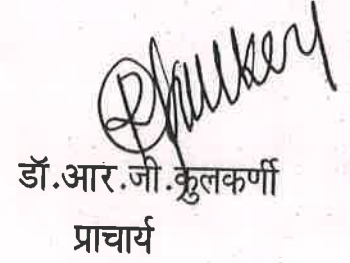 डॉ.आर.जी.कुलकर्णी
प्राचार्य